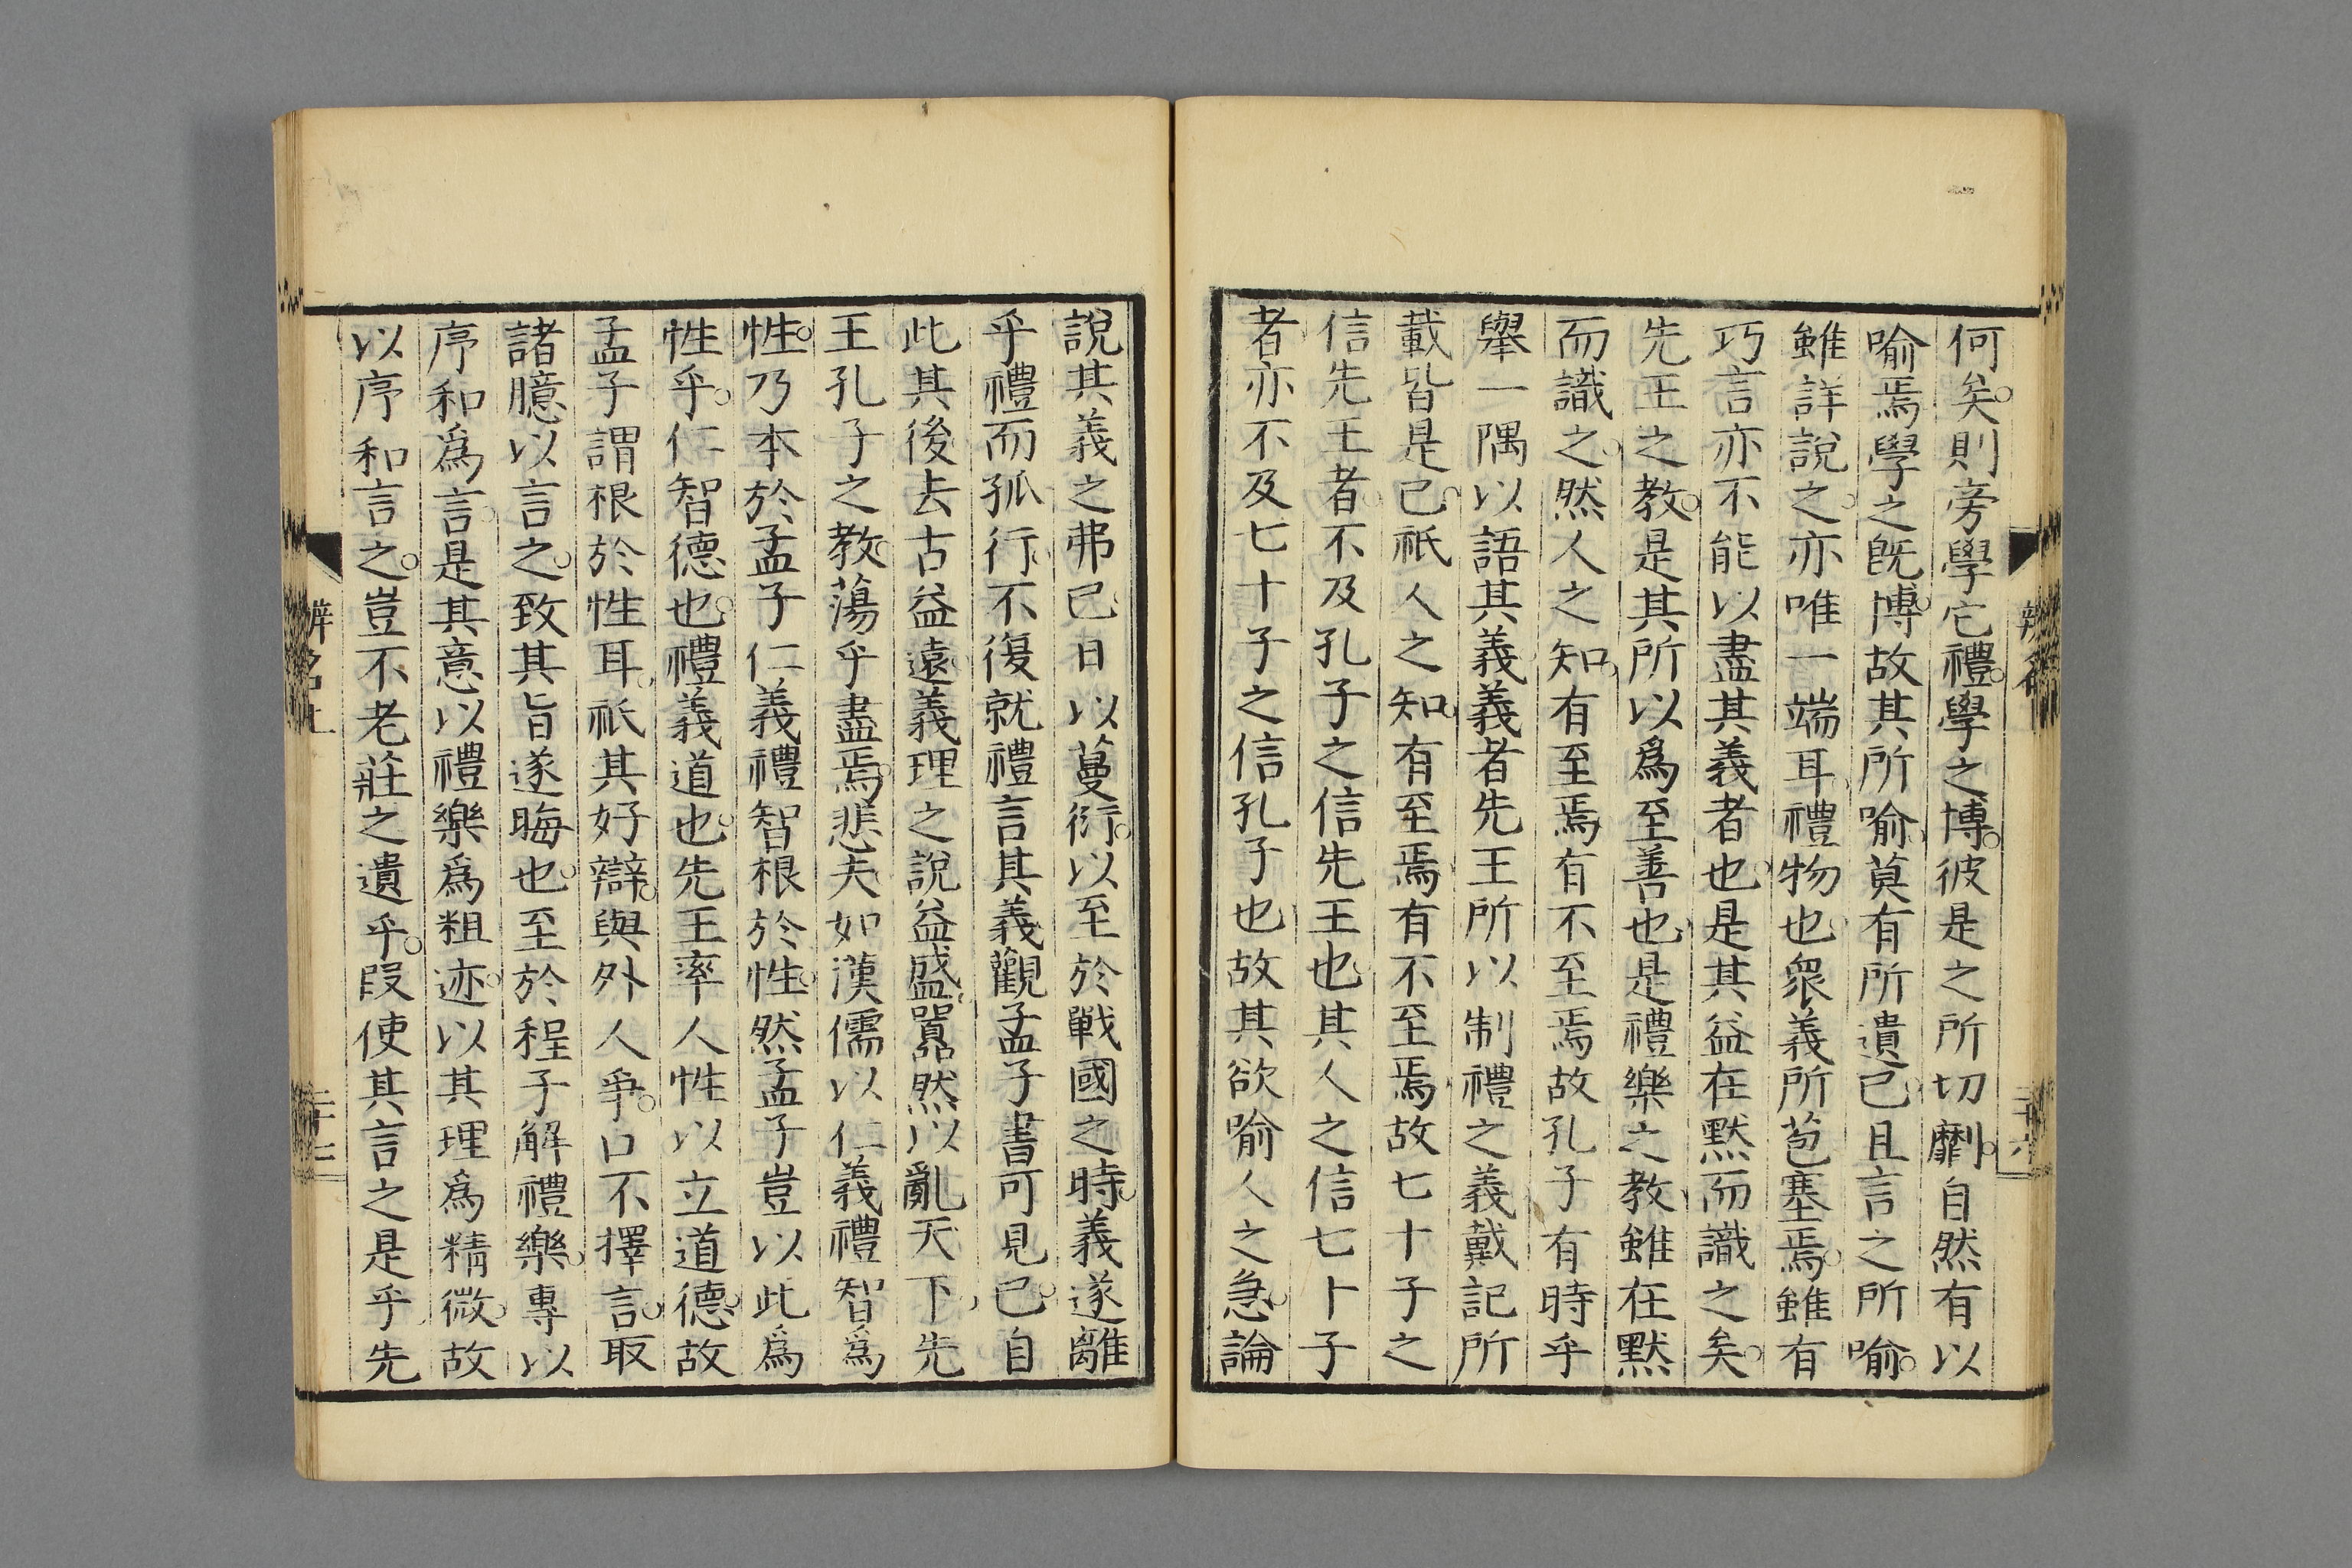 何矣。則旁學它禮。學之博。彼是之所切劘。自然有以
喻焉。學之旣博。故其所喻。莫有所遺已。且言之所喻。
雖詳說之。亦唯一端耳。禮物也。衆義所苞塞焉。雖有
巧言亦不能以盡其義者也。是其益在黙而識之矣。
先王之教。是其所以爲至善也。是禮樂之教。雖在黙
而識之。然人之知。有至焉有不至焉。故孔子有時乎
舉一隅以語其義。義者先王所以制禮之義。戴記所
載皆是已。祇人之知。有至焉。有不至焉。故七十子之
信先王者。不及孔子之信先王也。其人之信七十子
者。亦不及七十子之信孔子也。故其欲喻人之急。論
說其義之弗已。日以蔓衍。以至於戰國之時。義遂離
乎禮而孤行。不復就禮言其義。觀孟子書可見已。自
此其後。去古益遠。義理之說益盛。囂然以亂天下。先
王孔子之教。蕩乎盡焉。悲夫。如漢儒以仁義禮智爲
性。乃本於孟子仁義禮智根於性。然孟子豈以此爲
性乎。仁智德也。禮義道也。先王率人性以立道德。故
孟子謂根於性耳。祇其好辯。與外人爭。口不擇言。取
諸臆以言之。致其旨遂晦也。至於程子解禮樂。專以
序和爲言。是其意以禮樂爲粗迹。以其理爲精微。故
以序和言之。豈不老莊之遺乎。叚使其言之是乎。先
辨名上
二十七